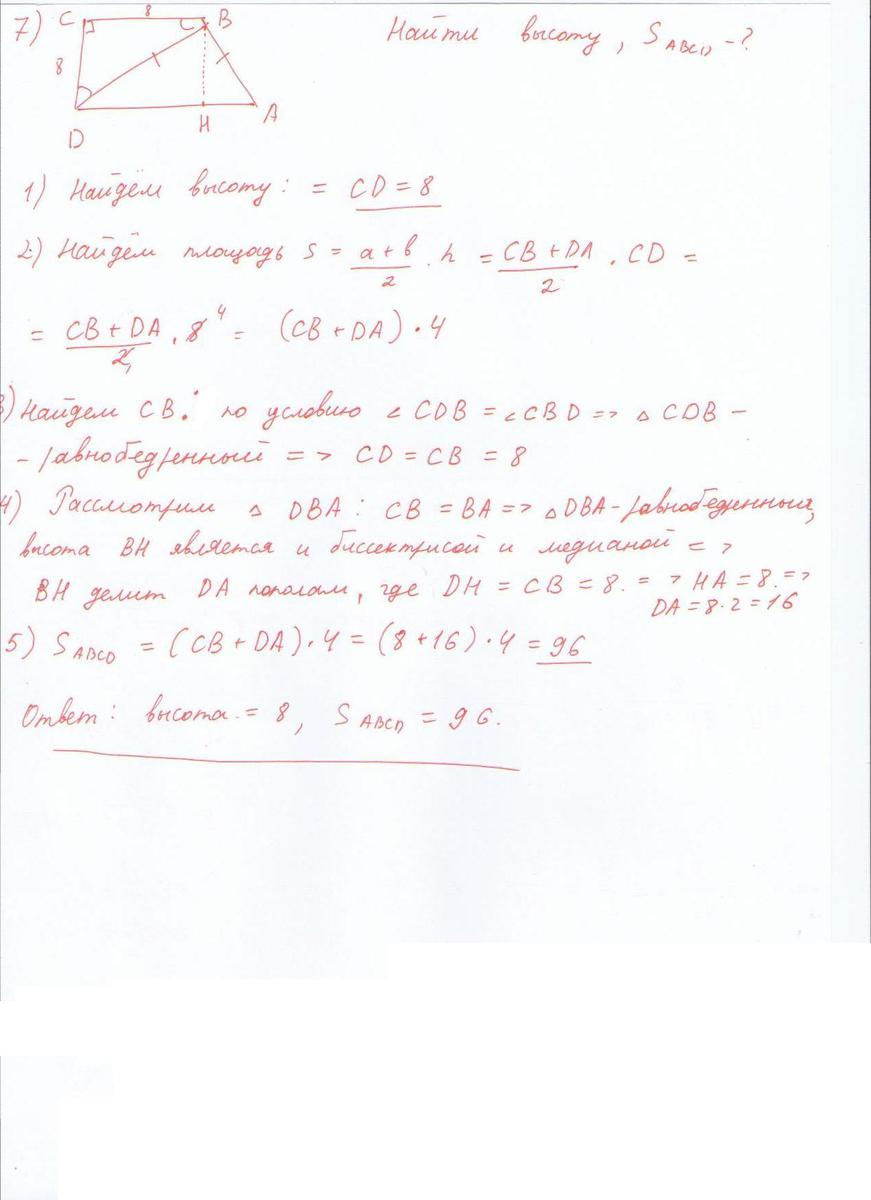 7) C 8 B Найти высоту, S ABCD - ?
8
D H A
1) Найдём высоту: = CD = 8
2) Найдём площадь S = a + b / 2 · h = CB + DA / 2 · CD =
= CB + DA / 2 · 8 4 = (CB + DA) · 4
3) Найдем CB: по условию ∠ CDB = ∠ CBD => △ CDB -
- равнобедренный => CD = CB = 8
4) Рассмотрим △ DBA: CB = BA => △ DBA - равнобедренный,
высота BH является и биссектрисой и медианой =>
BH делит DA пополам, где DH = CB = 8. => HA = 8. =>
DA = 8 · 2 = 16
5) S ABCD = (CB + DA) · 4 = (8 + 16) · 4 = 96
Ответ: высота = 8, S ABCD = 96.